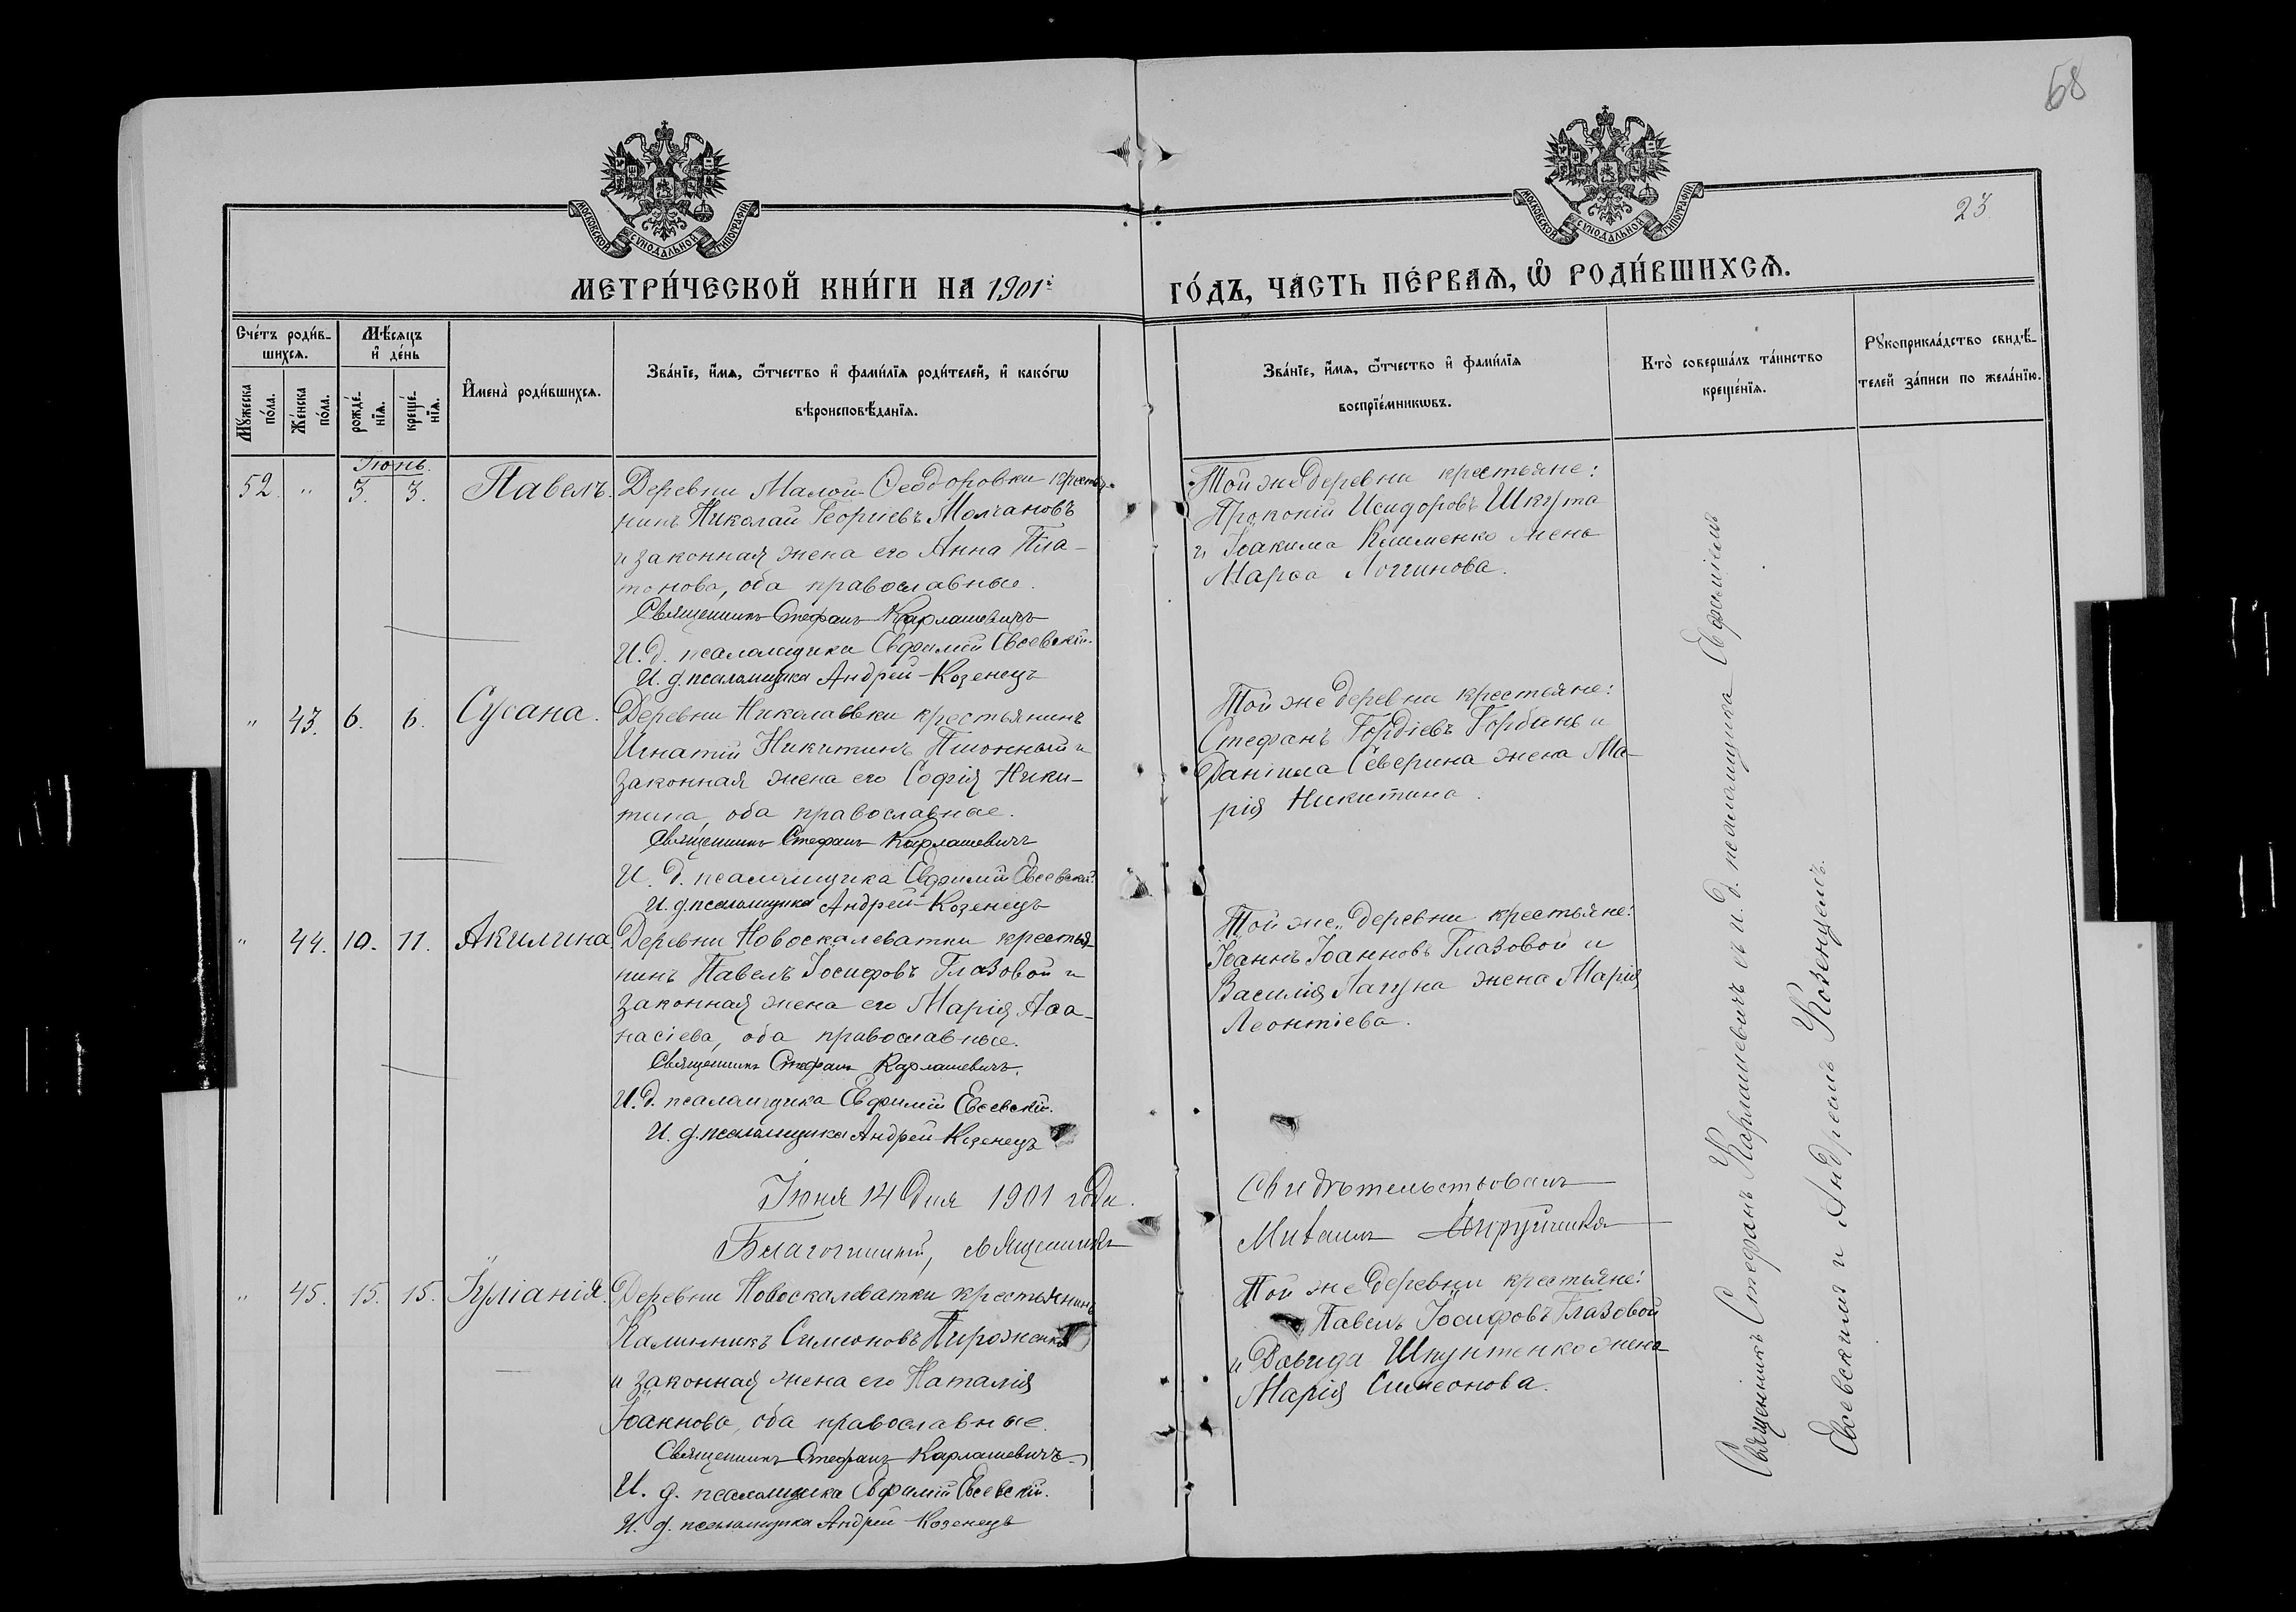 58
23.
МОСКОВСКОЙ СѴНОДАЛЬНОЙ ТИПОГРАФІИ
МОСКОВСКОЙ СѴНОДАЛЬНОЙ ТИПОГРАФІИ
МЕТРИ́ЧЕСКОЙ КНИ́ГИ НА 1901й
ГО́ДЪ, ЧА́СТЬ ПЕ́РВАѦ, Ѡ҆ РОДИ́ВШИХСѦ.
Сче́тъ роди́в-
шихсѧ.
Мꙋ́жеска по́ла.
Же́нска по́ла.
Мѣ́сѧцъ
и҆ де́нь
рожде́-
нїѧ.
креще́-
нїѧ.
И҆мена̀ роди́вшихсѧ.
Зва́нїе, и҆́мѧ, ѻ҆́тчество и҆ фами́лїѧ роди́телей, и҆ како́гѡ
вѣроисповѣ́данїѧ.
Зва́нїе, и҆́мѧ, ѻ҆́тчество и҆ фами́лїѧ
воспрїе́мникѡвъ.
Кто̀ соверша́лъ та́инство
креще́нїѧ.
Рꙋкоприкла́дство свидѣ́-
телей за́писи по жела́нїю.
Іюнь.
52. " 3. 3. Павелъ.
Деревни Малой-Ѳеодоровки крестья-
нинъ Николай Георгіевъ Молчановъ
и законная жена его Анна Пла-
тонова, оба православные.
Священникъ Стефанъ Карлашевичъ
И. д. псаломщика Евфимій Евсевскій.
И. д. псаломщика Андрей Козенецъ
Той же деревни крестьяне:
Прокопій Исидоровъ Шкута
и Іоакима Клименко жена
Марѳа Логгинова.
" 43. 6. 6. Сусана.
Деревни Николаевки крестьянинъ
Игнатій Никитинъ Пшонный и
законная жена его Софія Ники-
тина, оба православные.
Священникъ Стефанъ Карлашевичъ
И. д. псаломщика Евфимій Евсевскій.
И. д. псаломщика Андрей Козенецъ
Той же деревни крестьяне:
Стефанъ Гордіевъ Горбань и
Даніила Северина жена Ма-
рія Никитина.
" 44. 10. 11. Акилина
Деревни Новоскалеватки крестья-
нинъ Павелъ Іосифовъ Глазовой и
законная жена его Марія Аѳа-
насіева, оба православные.
Священникъ Стефанъ Карлашевичъ.
И. д. псаломщика Евфимій Евсевскій.
И. д. псаломщика Андрей Козенецъ
Той же деревни крестьяне:
Іоаннъ Іоанновъ Глазовой и
Василія Лагуна жена Марія
Леонтіева.
Іюня 14 дня 1901 года.
Свидѣтельствовалъ
Благочинный, священникъ
Михаилъ
" 45. 15. 15. Іуліанія.
Деревни Новоскалеватки крестьянинъ
Калинникъ Симеоновъ Пироженко
и законная жена его Наталія
Іоаннова, оба православные.
Священникъ Стефанъ Карлашевичъ
И. д. псаломщика Евфимій Евсевскій.
И. д. псаломщика Андрей Козенецъ
Той же деревни крестьяне:
Павелъ Іосифовъ Глазовой
и Давида Шпунтенко жена
Марія Симеонова.
Священникъ Стефанъ Карлашевичъ съ и. д. псаломщика Евфиміемъ
Евсевскимъ и Андреемъ Козенцемъ.